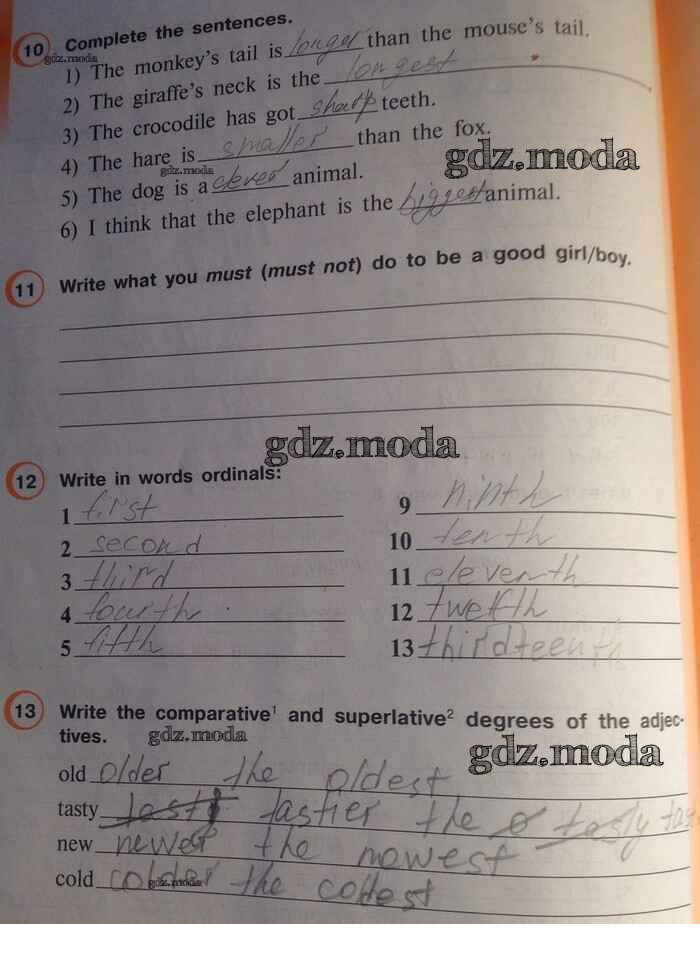 10 Complete the sentences.
gdz.moda
1) The monkey's tail is longer than the mouse's tail.
2) The giraffe's neck is the longest
3) The crocodile has got sharp teeth.
4) The hare is smaller than the fox.
gdz.moda
gdz.moda
5) The dog is a clever animal.
6) I think that the elephant is the biggest animal.
11 Write what you must (must not) do to be a good girl/boy.
gdz.moda
12 Write in words ordinals:
1 first
2 second
3 third
4 fourth
5 fifth
9 ninth
10 tenth
11 eleventh
12 twelfth
13 thirdteenth
13 Write the comparative¹ and superlative² degrees of the adjec-
tives.
gdz.moda
gdz.moda
old older the oldest
tasty tastier the
new newer the newest
cold colder the
gdz.moda